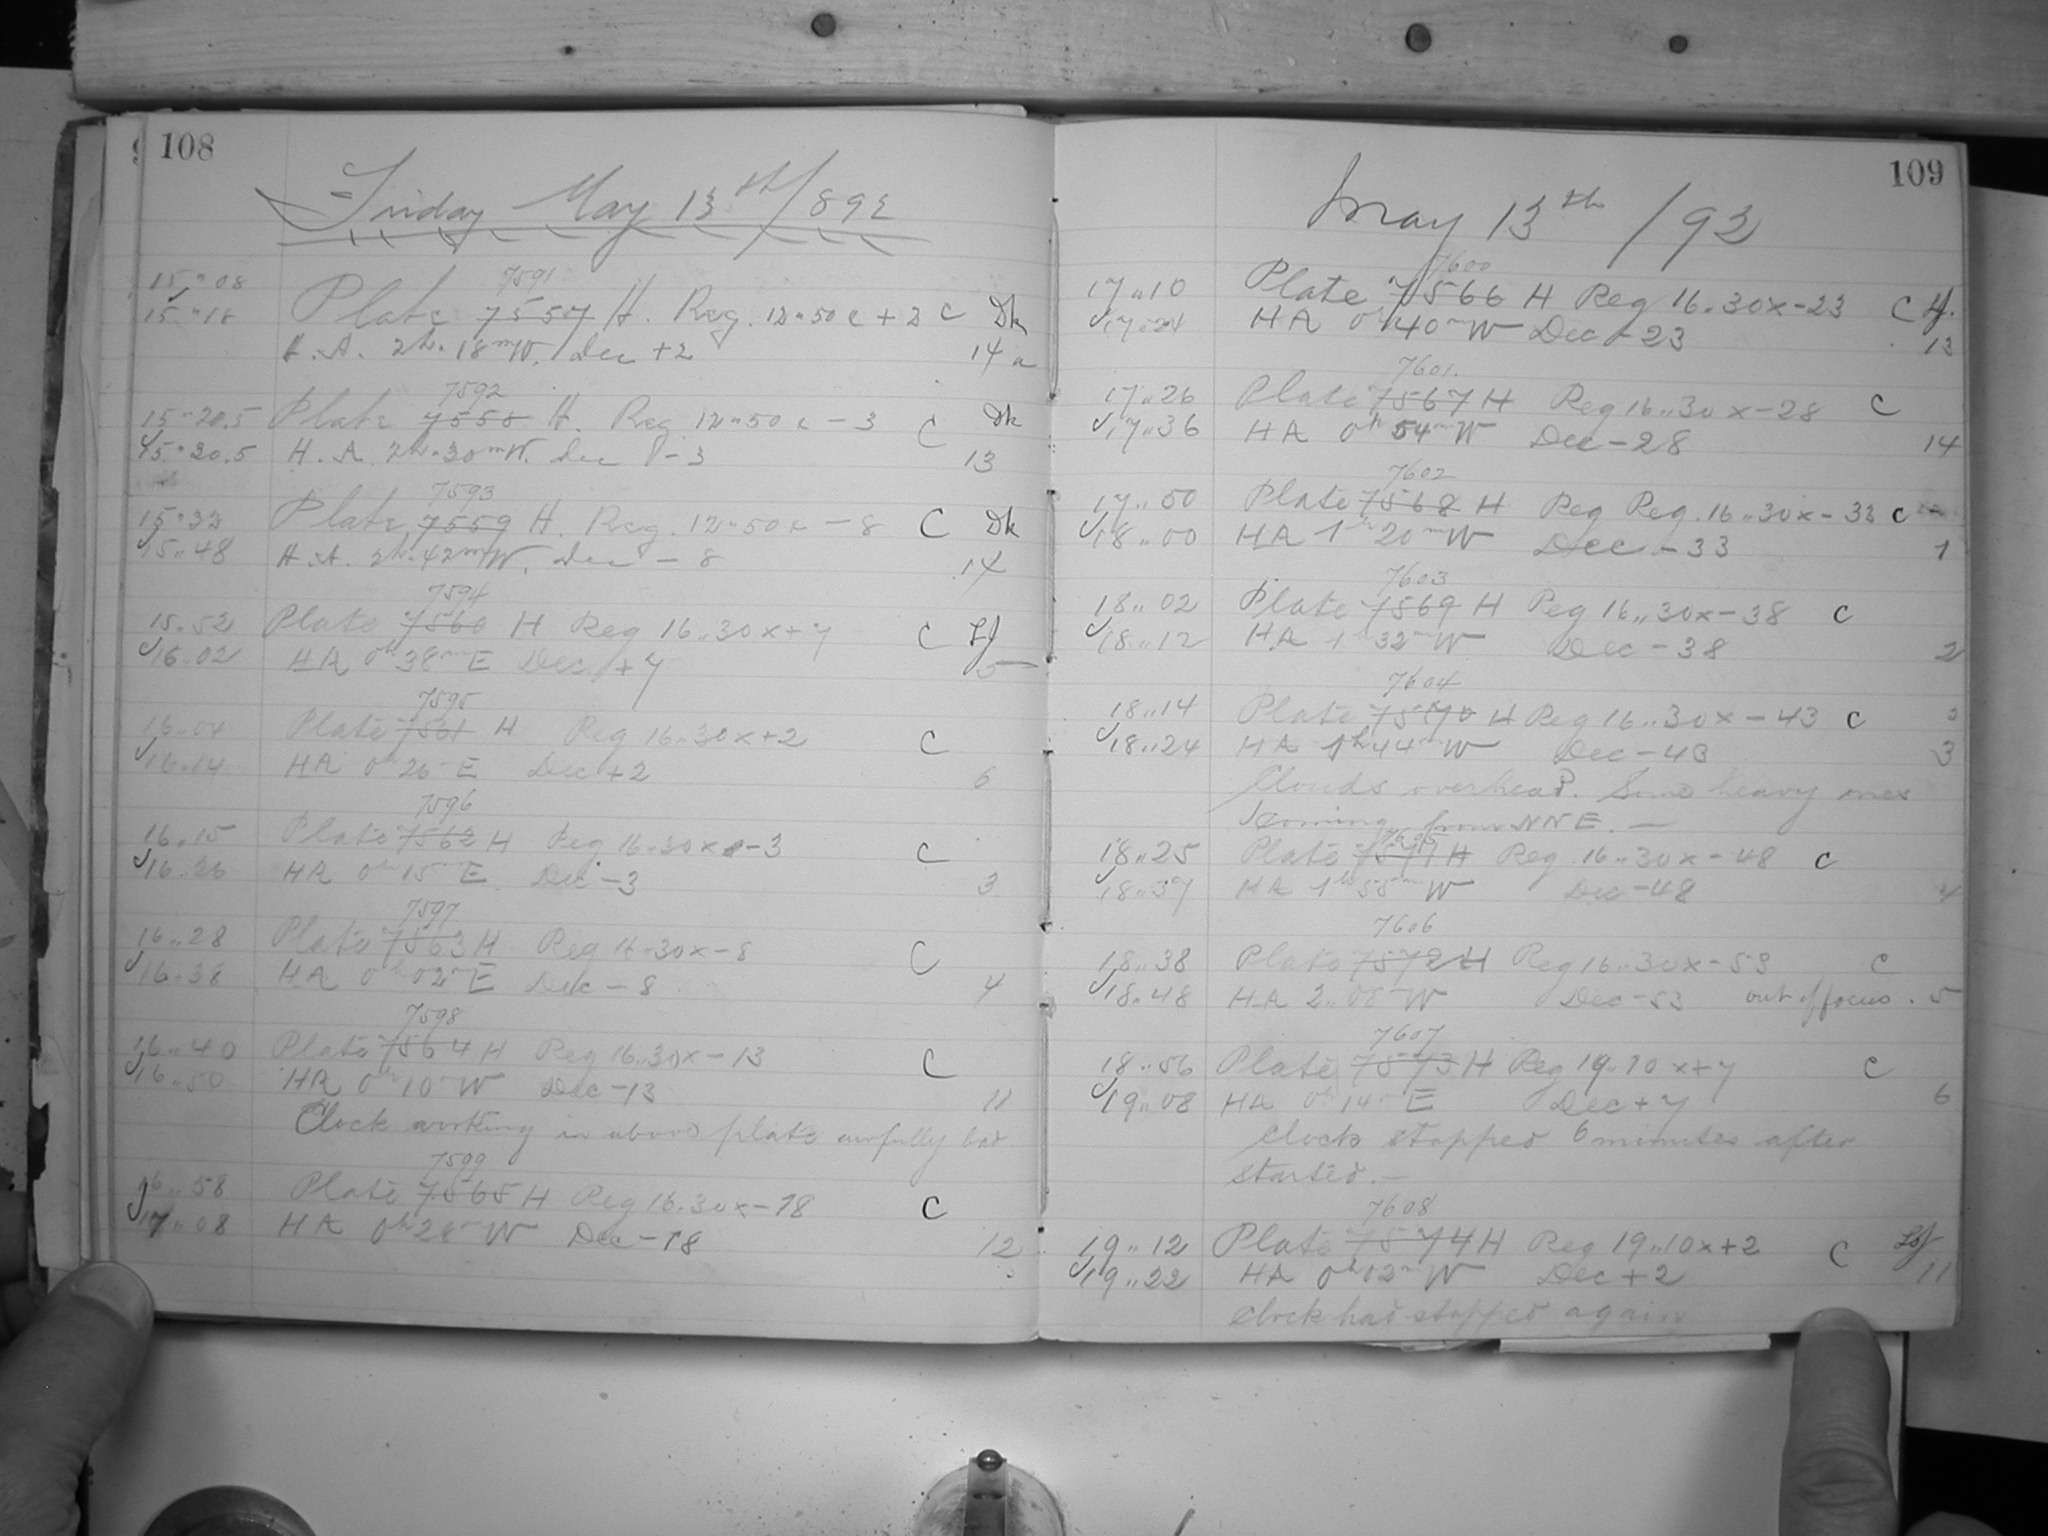 108
Friday May 13th/892
7591
15"08 Plate 7557 H. Reg. 12"50 x + 2 C Dk
15"18 H.A. 2h. 18m W. Dec +2 14 a
7592
15"20.5 Plate 7558 H. Reg 12"50 x - 3 C Dk
15"30.5 H.A. 2h. 30m W. Dec - 3 13
7593
15"32 Plate 7559 H. Reg. 12"50 x - 8 C Dk
15"48 H.A. 2h. 42m W. Dec - 8 14
7594
15"52 Plate 7560 H Reg 16"30x+7 C
16"02 HA 0h 38m E Dec +7 5
7595
16"04 Plate 7561 H Reg 16"30x+2 C
16"14 HA 0h 26m E Dec +2 6
7596
16"15 Plate 7562 H Reg 16"30x-3 C
16"26 HA 0h 15m E Dec -3 3
7597
16"28 Plate 7563 H Reg 16"30x-8 C
16"38 HA 0h 02m E Dec -8 4
7598
16"40 Plate 7564 H Reg 16"30x-13 C
16"50 HA 0h 10m W Dec -13 11
Clock working in above plate awfully bad.
7599
16"58 Plate 7565 H Reg 16"30x-18 C
17"08 HA 0h 28m W Dec -18 12
109
May 13th /92
7600
17"10 Plate 7566 H Reg 16"30x-23 C
17"24 HA 0h 40m W Dec -23 13
7601.
17"26 Plate 7567 H Reg 16"30x-28 C
17"36 HA 0h 54m W Dec -28 14
7602
17"50 Plate 7568 H Reg Reg. 16"30x-33 C
18"00 HA 1h 20m W Dec -33 1
7603
18"02 Plate 7569 H Reg 16"30x-38 C
18"12 HA 1h 32m W Dec -38 2
7604
18"14 Plate 7570 H Reg 16"30x-43 C 3
18"24 HA 1h 44m W Dec -43 3
Clouds overhead. Some heavy ones
coming from NNE. —
7605
18"25 Plate 7571 H Reg 16"30x-48 C
18"37 HA 1h 55m W Dec -48 4
7606
18"38 Plate 7572 H Reg 16"30x-53 C
18"48 HA 2"08m W Dec -53 out of focus. 5
7607
18"56 Plate 7573 H Reg 19"10x+7 C
19"08 HA 0h 14m E Dec +7 6
Clock stopped 6 minutes after
started.—
7608
19"12 Plate 7574 H Reg 19"10x+2 C
19"22 HA 0h 02m W Dec +2 11
Clock had stopped again